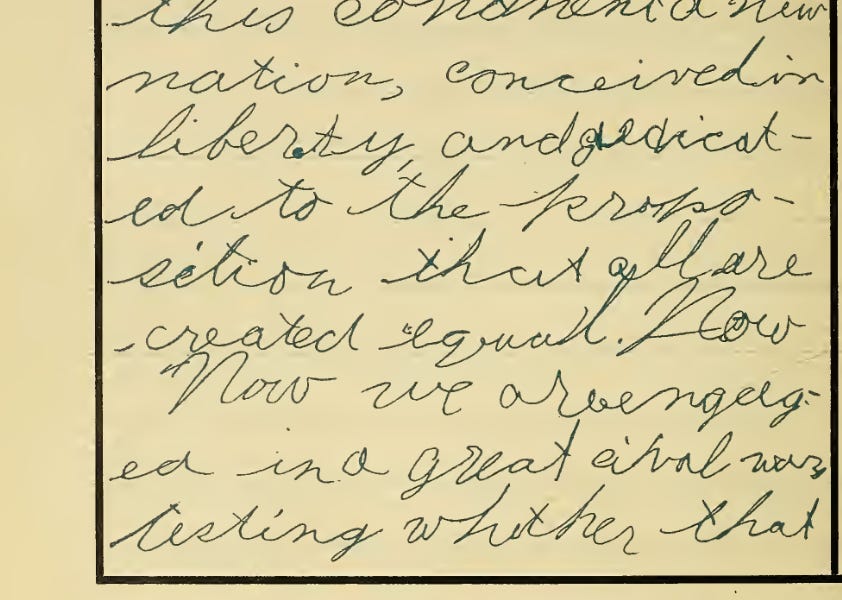 this continent a new
nation, conceived in
liberty, and dedicat-
ed to the propo-
sition that all are
created equal. Now
Now we are engag-
ed in a great cival war,
testing whether that